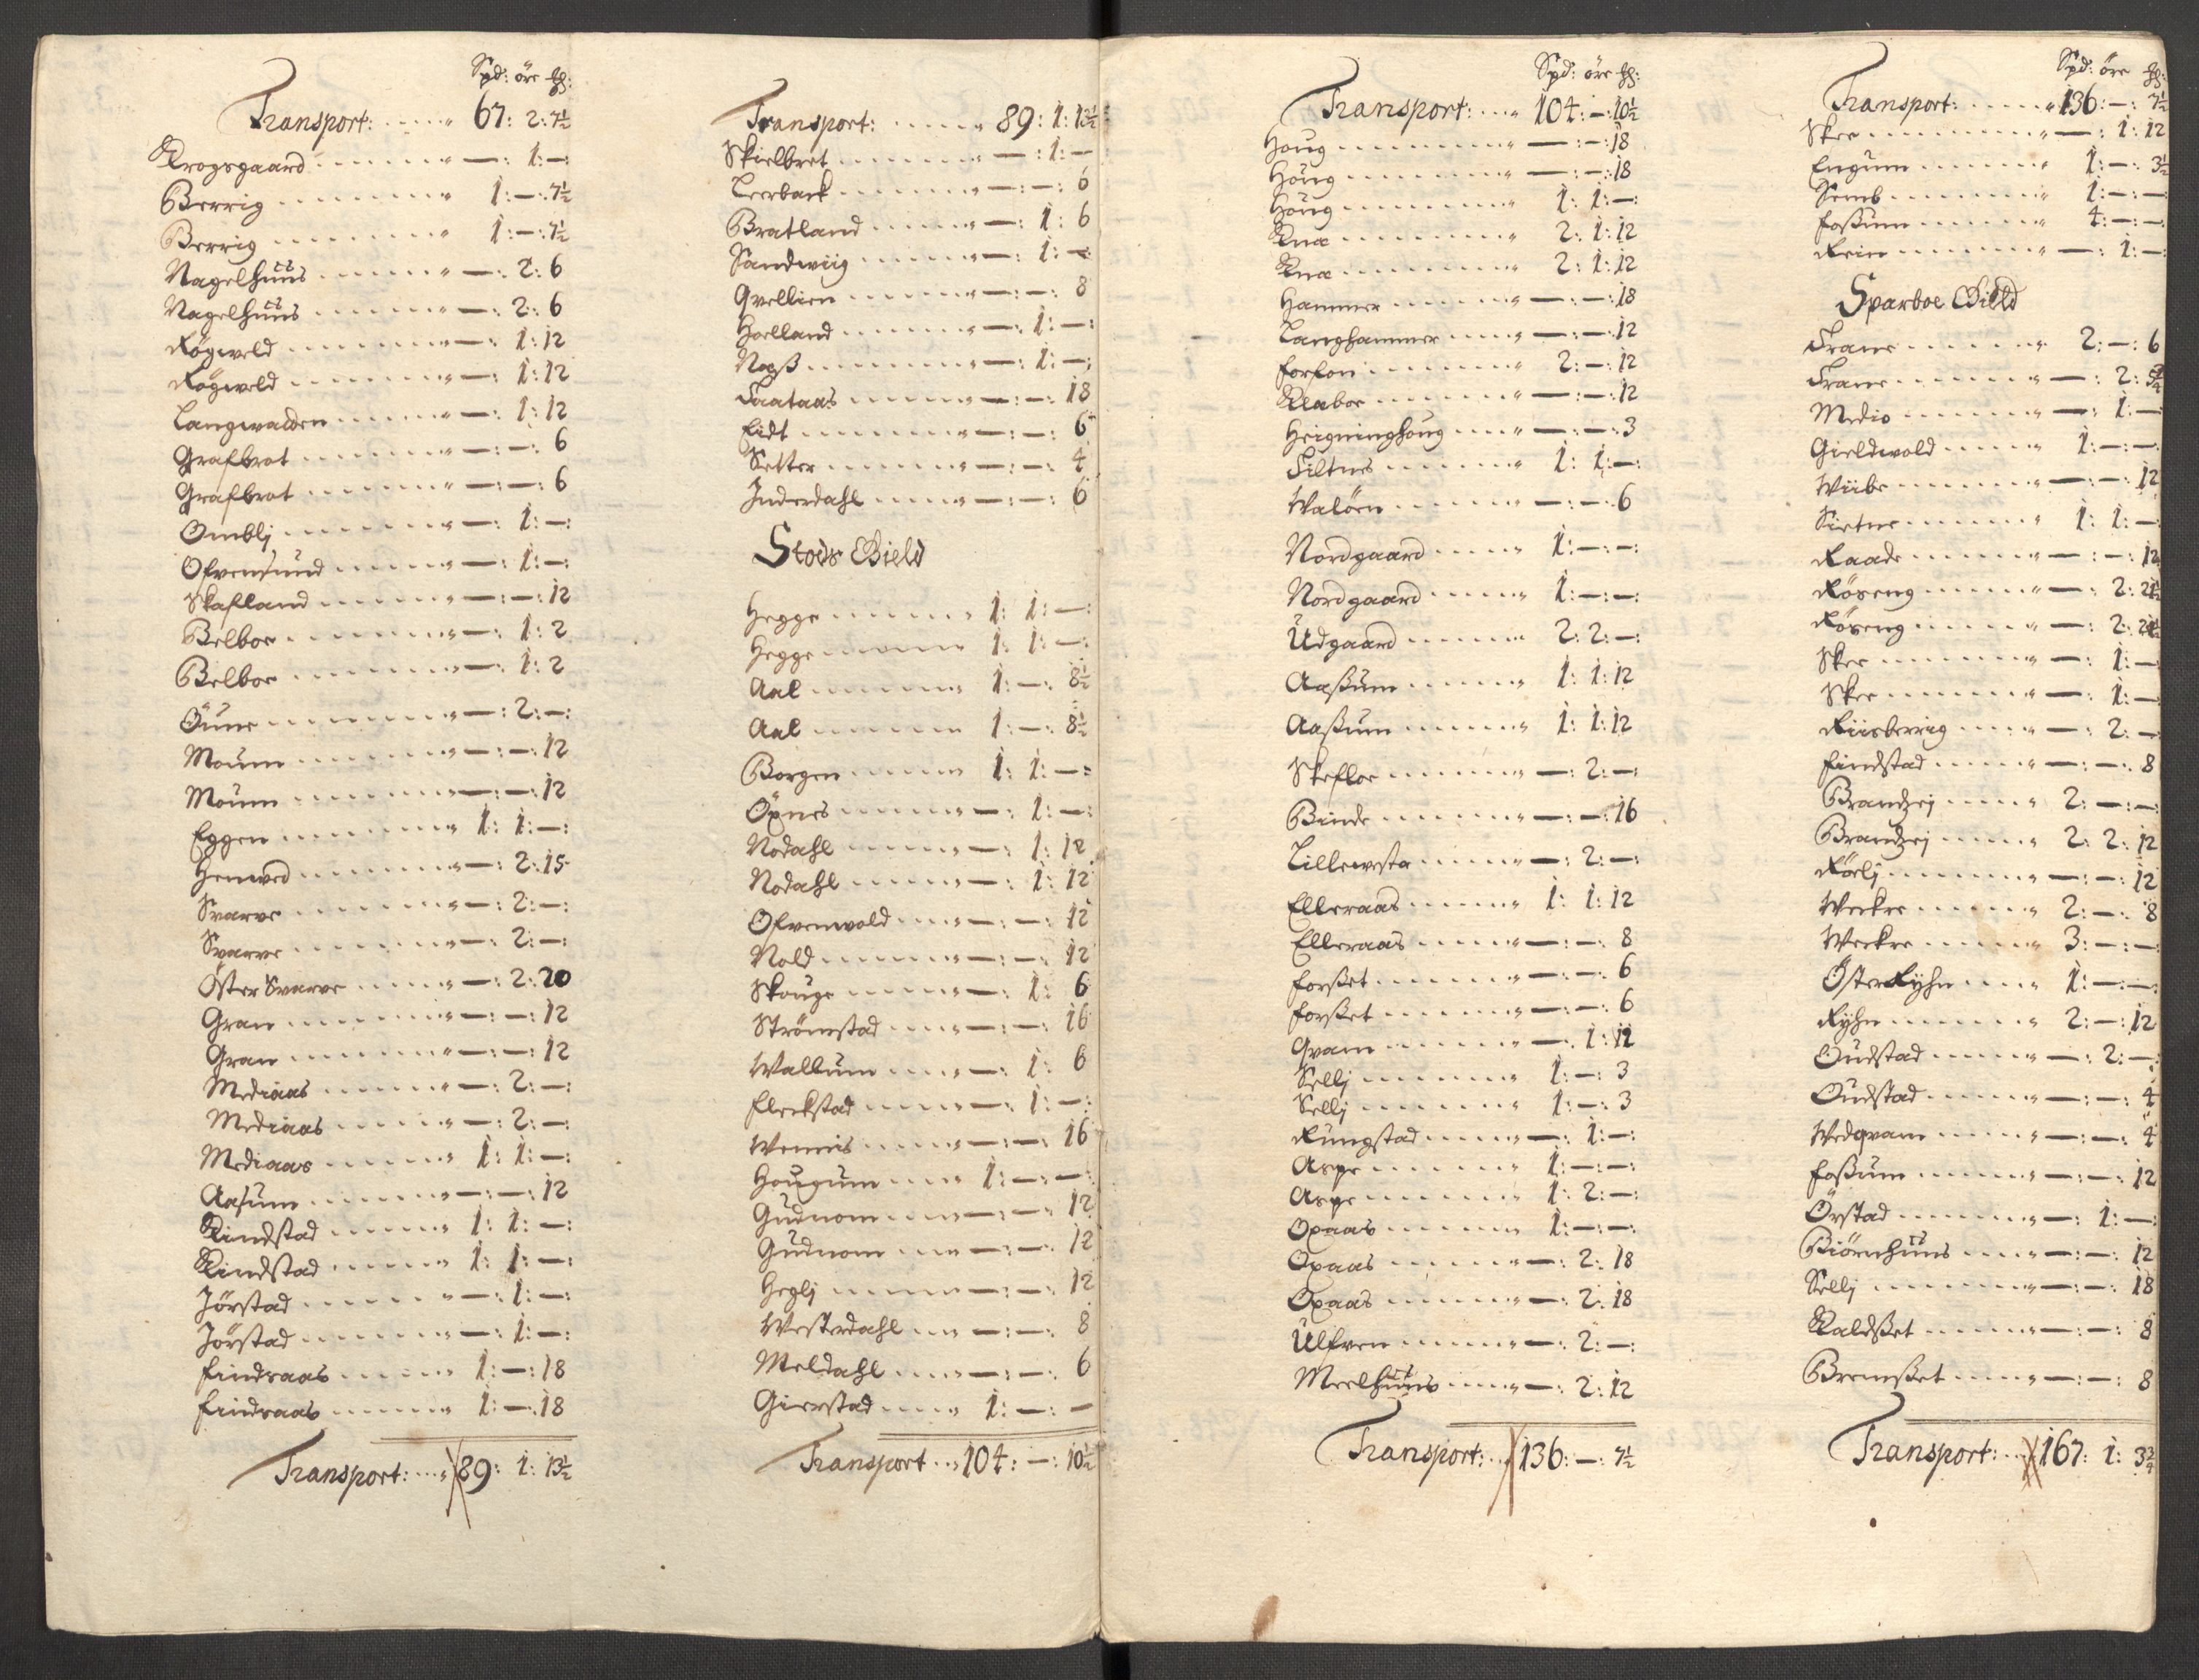 Spd: öre ₰:
Transport: 67: 2: 7½
Krogsgaard — : 1: —:
Berrig 1: —: 7½
Berrig 1: —: 7½
Nagelhuus —: 2: 6
Nagelhuus —: 2: 6
Rögweld —: 1: 12
Rögweld —: 1: 12
Langwalden —: 1: 12
Grafbrot —: —: 6
Grafbrot —: —: 6
Omblj —: 1: —:
Ofvensund —: 1: —:
Skafland —: —: 12
Belboe —: 1: 2
Belboe —: 1: 2
Öune —: 2: —:
Moum —: —: 12
Moum —: —: 12
Eggen 1: 1: —:
Henwed —: 2: 15
Svarve —: 2: —:
Svarve —: 2: —:
Öster Svarve —: 2: 20
Gran —: —: 12
Gran —: —: 12
Mediaas —: 2: —:
Mediaas —: 2: —:
Mediaas 1: 1: —:
Aasum —: —: 12
Kindstad 1: 1: —:
Kindstad 1: 1: —:
Jörstad —: 1: —:
Jörstad —: 1: —:
Findsaas 1: —: 18
Findsaas 1: —: 18
Transport: 89: 1: 13½
Transport: 89: 1: 13½
Skielbret —: 1: —
Leerback —: —: 6
Bratland —: 1: 6
Sandwiig —: 1: —
Qvellien —: —: 8
Hoelland —: 1: —:
Næss —: 1: —:
Faataas —: —: 18
Eidt —: —: 6
Setter —: —: 4
Inderdahl —: —: 6
Stods Gield
Hegge 1: 1: —:
Hegge 1: 1: —:
Aal 1: —: 8½
Aal 1: —: 8½
Borgen 1: 1: —:
Öxnes —: 1: —:
Nodahl —: 1: 12
Nodahl —: 1: 12
Ofvenwold —: —: 12
Nold —: —: 12
Skouge —: 1: 6
Strömstad —: —: 16
Wallum —: 1: 6
Fleckstad —: 1: —:
Wennis —: —: 16
Hougum 1: —: —:
Gudnom —: —: 12
Gudnom —: —: 12
Heglj —: —: 12
Westerdahl —: —: 8
Meldahl —: —: 6
Gierstad 1: —: —
Transport 104: —: 10½
Spd: öre ₰:
Transport: 104: —: 10½
Houg —: —: 18
Houg —: —: 18
Houg 1: 1: —:
Knæ 2: 1: 12
Knæ 2: 1: 12
Hammer —: —: 18
Langhammer —: —: 12
Forfon 2: —: 12
Klaboe —: —: 12
Heigninghoug —: —: 3
Tiltnes 1: 1: —:
Walöen —: —: 6
Nordgaard 1: —: —:
Nordgaard 1: —: —:
Udgaard 2: 2: —:
Aassum 1: 1: 12
Aassum 1: 1: 12
Skefloe —: 2: —:
Binde —: —: 16
Lillewesta —: 2: —:
Elleraas 1: 1: 12
Elleraas —: —: 8
Forsset —: —: 6
Forsset —: —: 6
Qvam —: 1: 12
Sellj 1: —: 3
Sellj 1: —: 3
Rungstad —: 1: —:
Aspe 1: —: —:
Aspe 1: 2: —:
Oxaas 1: —: —:
Oxaas —: 2: 18
Oxaas —: 2: 18
Ulfven —: 2: —:
Meelhuus —: 2: 12
Transport: 136: —: 7½
Spd: öre ₰:
Transport: 136: —: 7½
Skee —: 1: 12
Engum 1: —: 3½
Semb 1: —: —:
Fossum 4: —: —:
Rein —: 1: —:
Sparboe Gield
Trane 2: —: 6
Trane —: 2:
Medio —: 1: —
Gieldwold 1: —: —:
Wiibe —: —: 12
Sietne 1: 1: —:
Raade —: —: 12
Röseng —: 2:
Röseng —: 2:
Skee —: 1: —
Skee —: 1: —
Riisberrig —: 2: —
Findstad —: —: 8
Brandzej 2: —: —:
Brandzej 2: 2: 12
Röelj —: —: 12
Weekre 2: —: 8
Weekre 3: —: —
Öster Ryhn 1: —: —:
Ryhn 2: —: 12
Oudstad —: 2: —:
Oudstad —: —: 4
Wedqvam —: —: 4
Fossum —: —: 12
Örstad —: 1: —:
Biörnhuus —: —: 12
Sellj —: —: 18
Kaldsset —: —: 8
Bremsset —: —: 8
Transport: 167: 1: 3¾